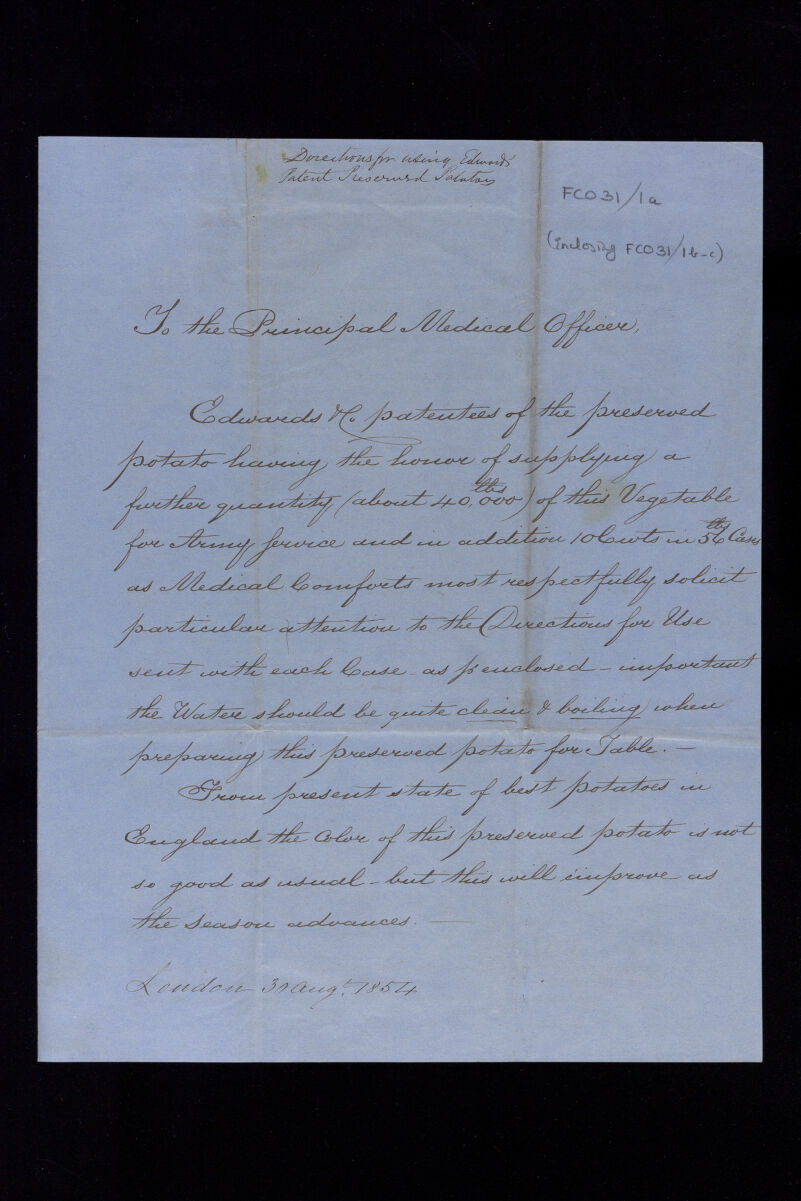 Directions for using Edwards
Patent Preserved Potatoes
FCO31/1a
(Enclosing FCO31/1b-c)
To the Principal Medical Officer,
Edwards & Co patentees of the preserved
potato having the honor of supplying a
further quantity (about 40,000 lbs) of this Vegetable
for Army Service and in addition 10 Cwts in 56 lb Cases
as Medical Comforts most respectfully solicit
particular attention to the Directions for Use
sent with each Case - as pr enclosed - important
the Water should be quite clean & boiling when
preparing this preserved potato for Table. -
From present state of best potatoes in
England the Color of this preserved potato is not
so good as usual - but this will improve as
the season advances. -
London Augt. 1854